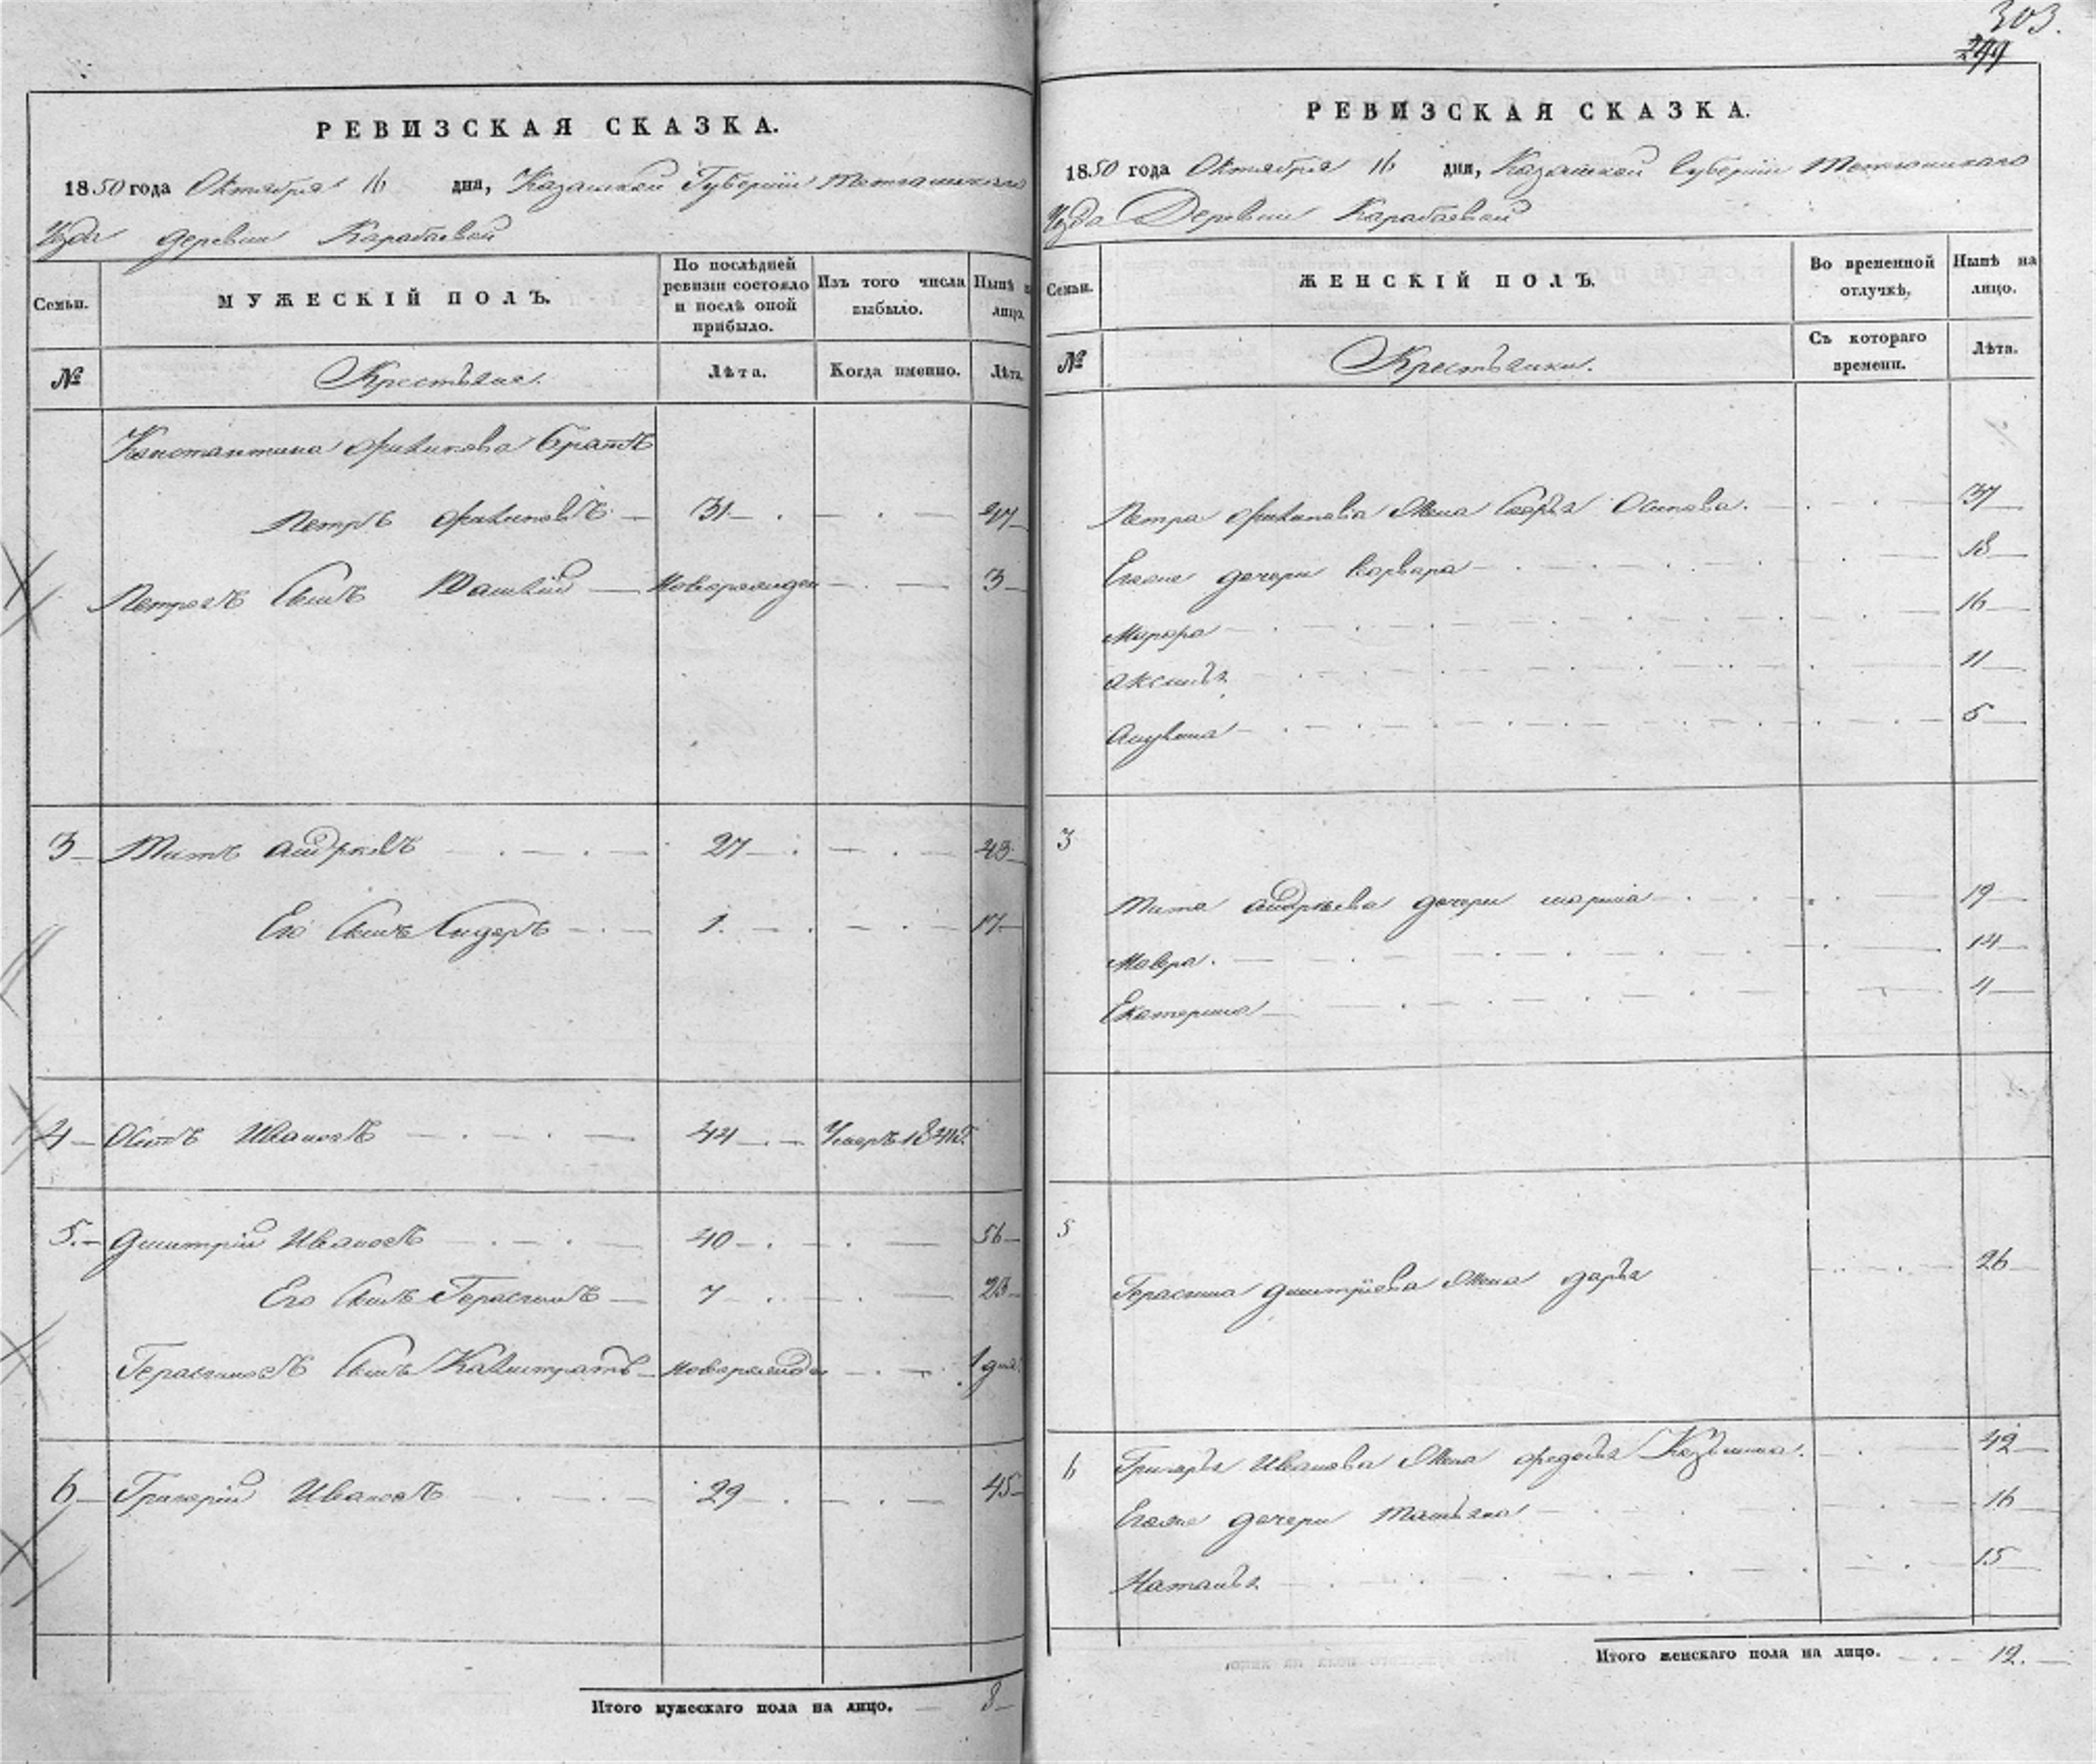 РЕВИЗСКАЯ СКАЗКА.
1850 года Октября 16 дня, Казанской Губернiи Тетюшскаго
Уезда деревни Карабаевой
Семьи. МУЖЕСКIЙ ПОЛЪ. По послѣдней ревизiи состояло и послѣ оной прибыло. Изъ того числа выбыло. Нынѣ на лицо.
№ Крестьяне. Лѣта. Когда именно. Лѣта.
Константина Филипова братъ
Петръ Филиповъ 31 47
Петровъ сынъ новорожден 3
3 Титъ Андреевъ 27 43
Его сынъ Сидоръ 1 17
4 Осипъ Ивановъ 44 Умеръ
5. Дмитрiй Ивановъ 40 56
Его сынъ Герасимъ 7 23
Герасимовъ сынъ Калистратъ новорожден 1 дня
6 Григорiй Ивановъ 29 45
Итого мужескаго пола на лицо. 8
303.
299
РЕВИЗСКАЯ СКАЗКА.
1850 года Октября 16 дня, Казанской Губернiи Тетюшскаго
Уезда Деревни Карабаевой
Семьи. ЖЕНСКIЙ ПОЛЪ. Во временной отлучкѣ, Нынѣ на лицо.
№ Крестьянки. Съ котораго времени. Лѣта.
Петра Филипова жена Софья Осипова. 37
Егоже дочери Варвара 18
Марфа 16
Аксинья 11
5
3
Тита Андреева дочери Марiя 19
Мавра. 14
Екатерина 11
5
Герасима Дмитрiева жена Дарья 26
6 Григорья Иванова жена Федосья Козьмина. 42
Егоже дочери Татьяна 16
Наталья 15
Итого женскаго пола на лицо. 12.